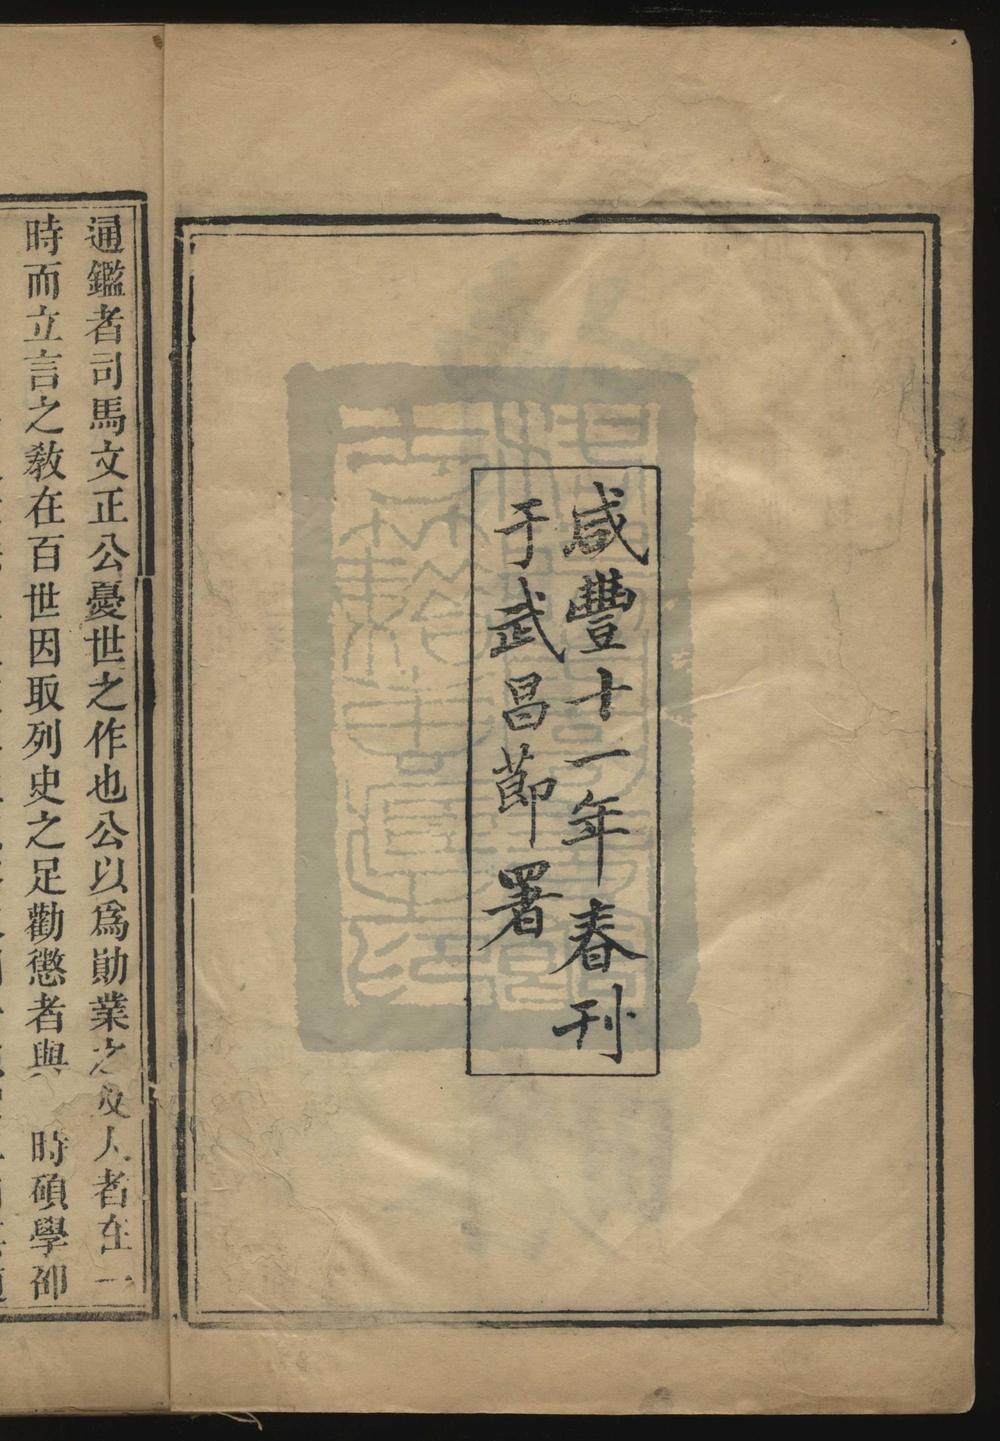 咸豐十一年春刊
于武昌節署
通鑑者司馬文正公憂世之作也公以爲勛業之及人者在一
時而立言之教在百世因取列史之足勸懲者與 時碩學卲